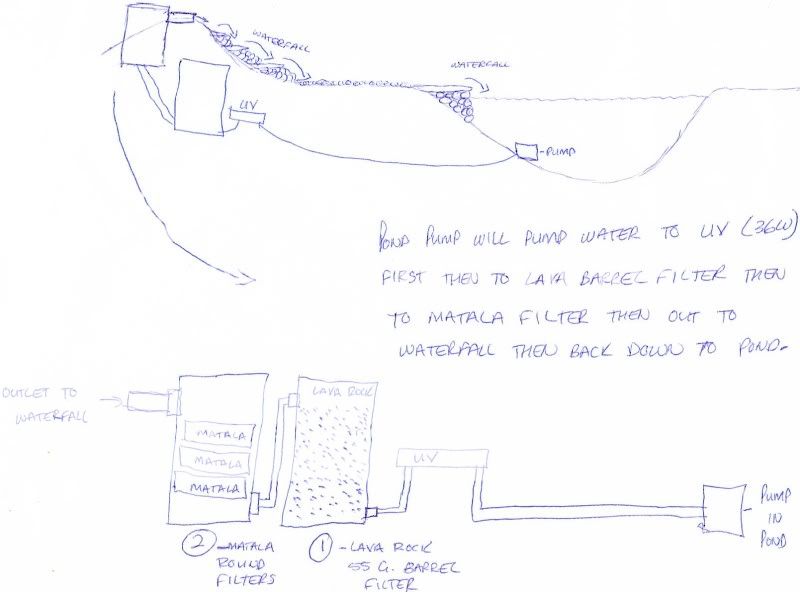 WATERFALL
WATERFALL
UV
-PUMP
POND PUMP WILL PUMP WATER TO UV (36W)
FIRST THEN TO LAVA BARREL FILTER THEN
TO MATALA FILTER THEN OUT TO
WATERFALL THEN BACK DOWN TO POND.
OUTLET TO
WATERFALL
LAVA ROCK
MATALA
MATALA
MATALA
UV
PUMP
IN
POND
2 -MATALA
ROUND
FILTERS
1 -LAVA ROCK
55 G. BARREL
FILTER